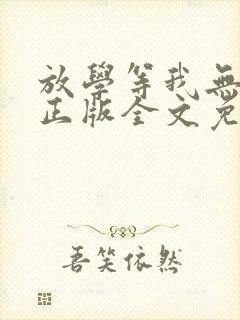 放學等我無
正版全文免
吾笑依然